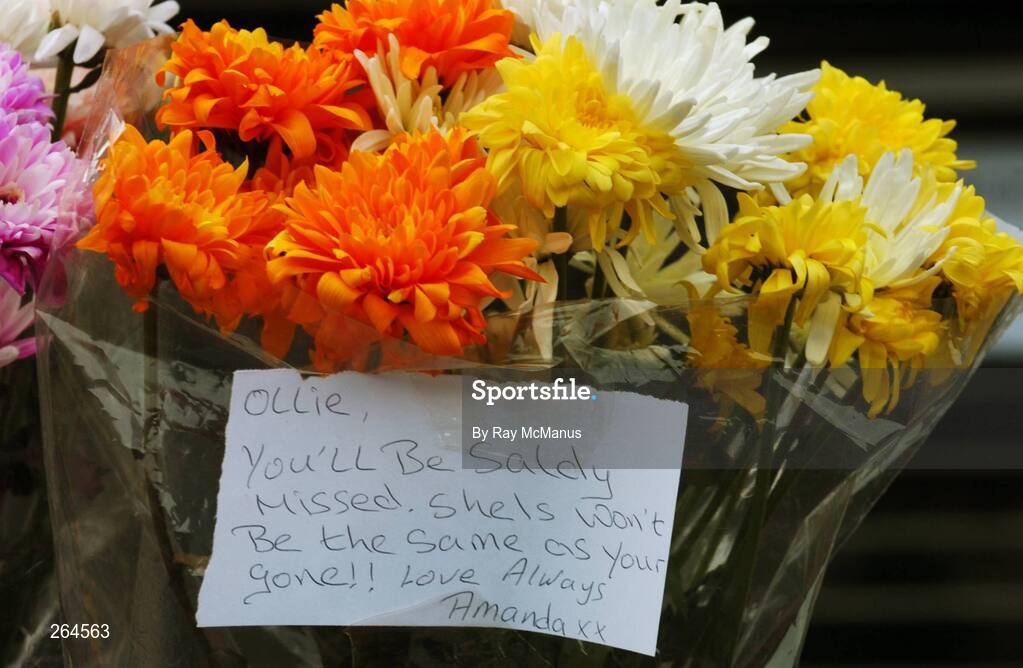 OLLIE,
Sportsfile.
By Ray McManus
You'LL Be Saldy
Missed. Shels won't
Be the same as your
gone!! Love Always
Amanda xx
264563